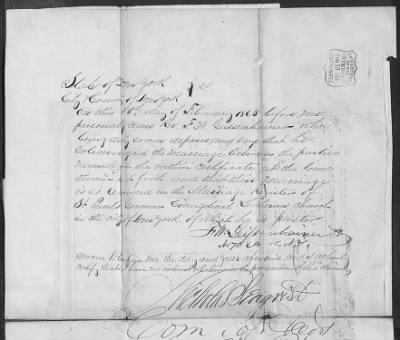 State of New York
City & County of New York
On this 10th day of February 1865 before me
personally came Rev. F. W. Geissenhainer who
being duly sworn deposes and says that he
solemnized the marriage between the parties
named in the within certificate at the time
therein set forth and that their marriage
is as recorded in the Marriage Register of
St Pauls German Evangelical Lutheran Church
in the city of New York, of which he is pastor
F W Geissenhainer
sworn to before me the day and year aforesaid and I
certify that I have no interest in the prosecution of this claim
Nicholas
Com of Deeds